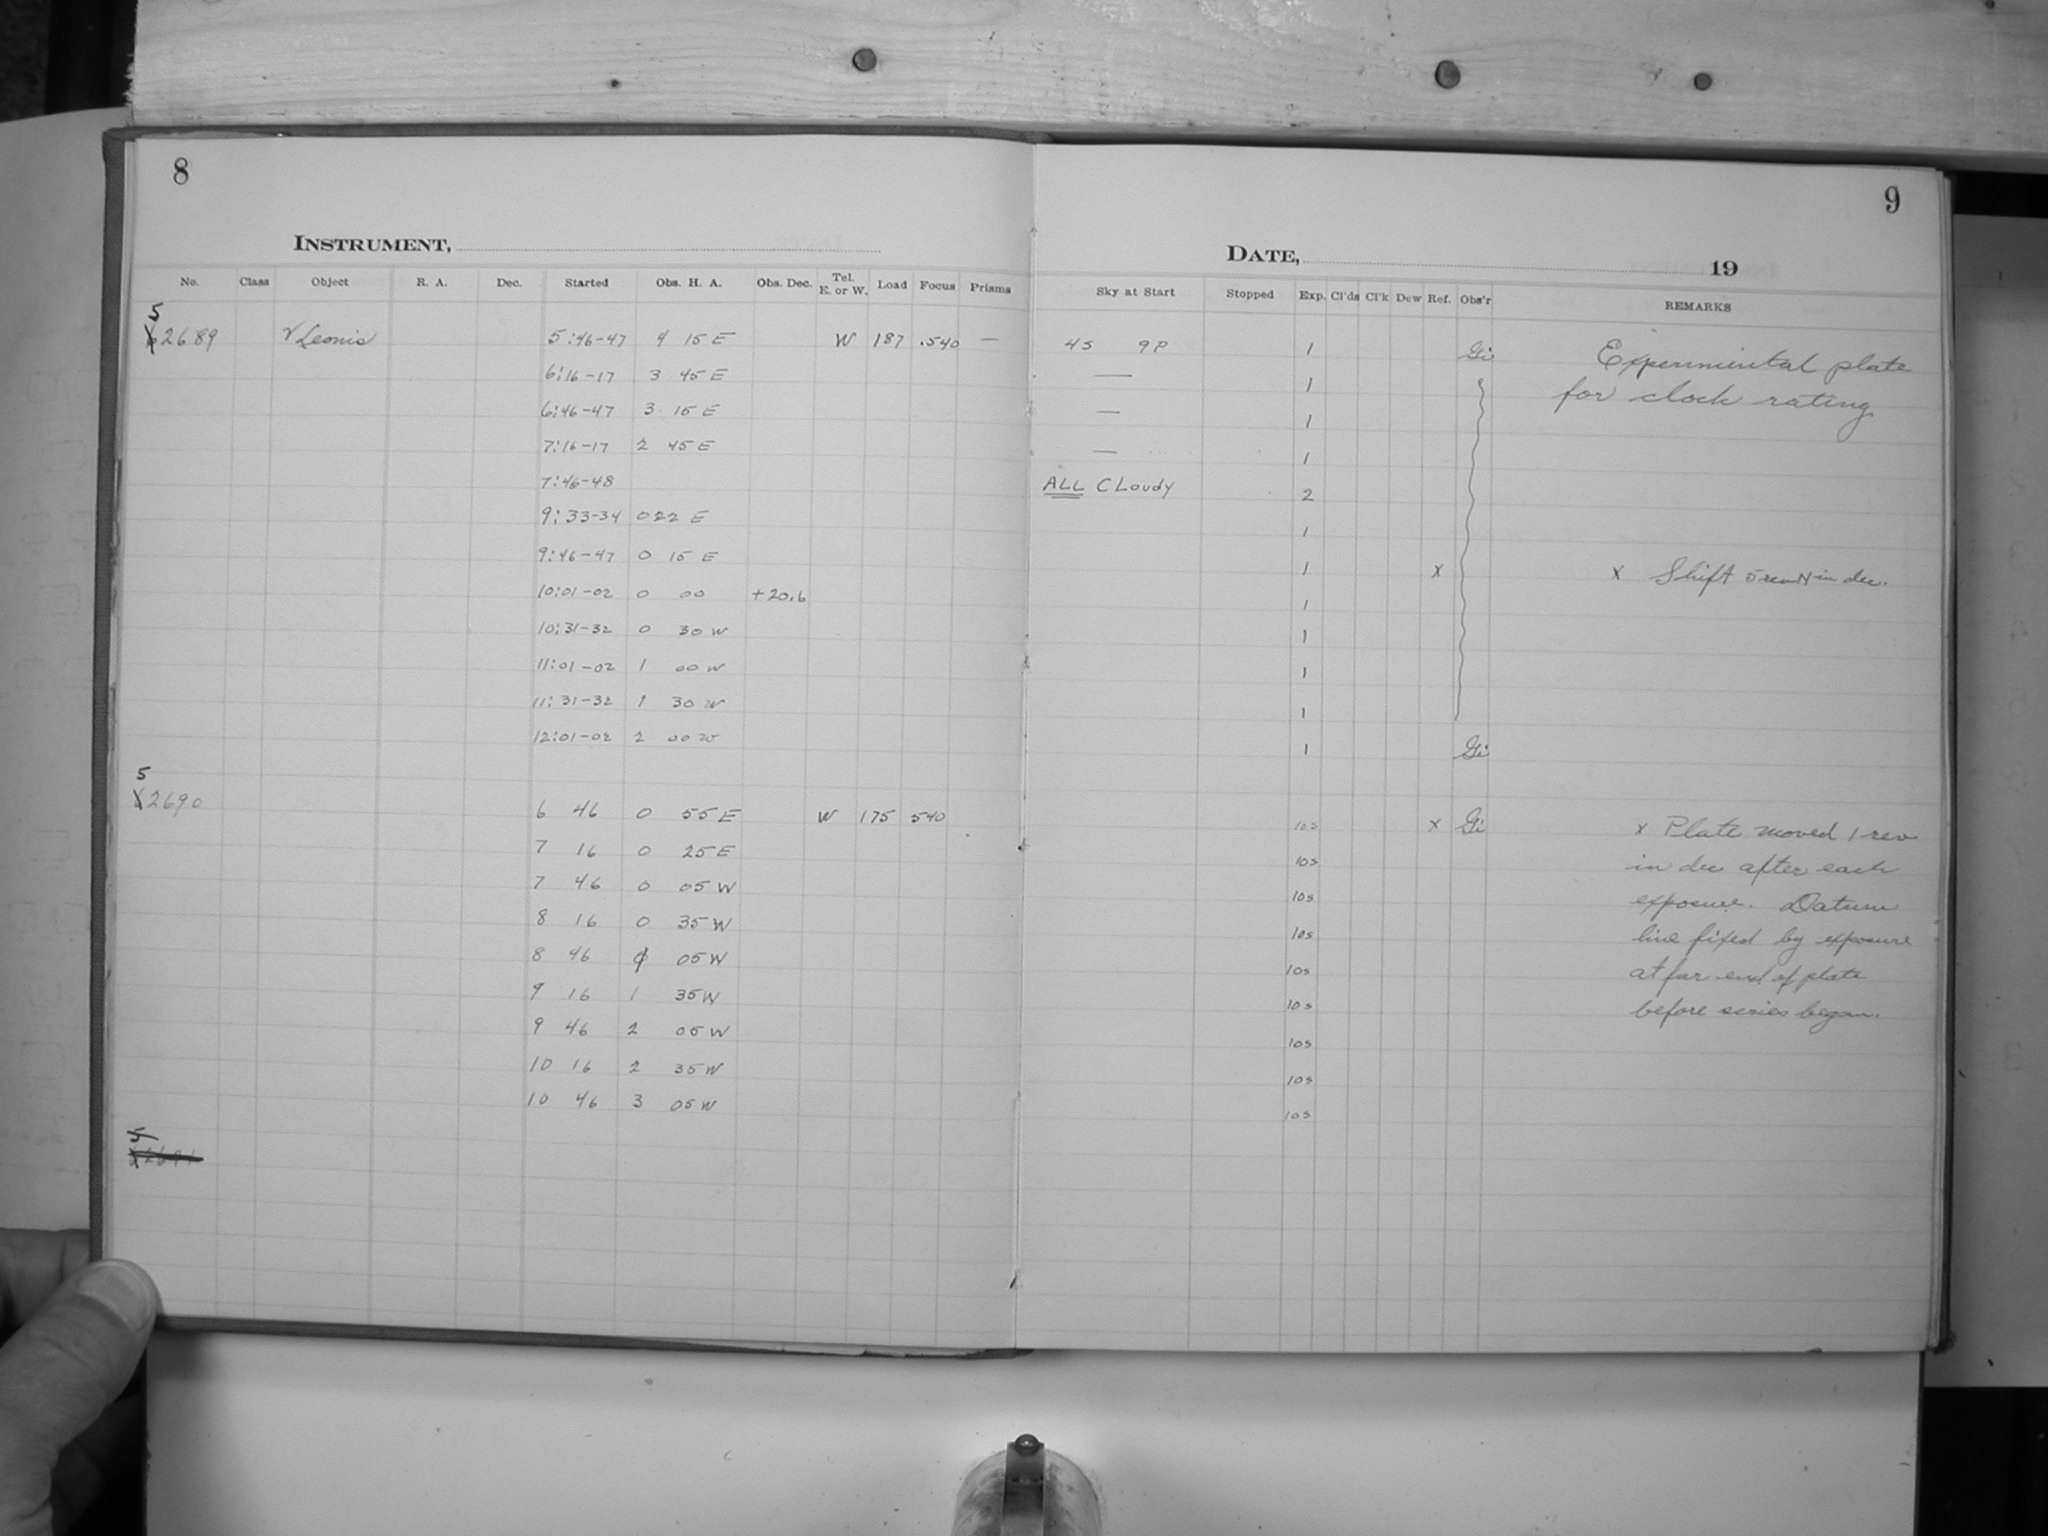 8
9
INSTRUMENT,
DATE, 19
No. Class Object R. A. Dec. Started Obs. H. A. Obs. Dec. Tel. E. or W. Load Focus Prisms Sky at Start Stopped Exp. Cl'ds Cl'k Dew Ref. Obs'r REMARKS
5
2689 γ Leonis 5:46-47 4 15 E W 187 .540 — 4S 9P 1 Gi Experimental plate
6:16-17 3 45 E — 1 for clock rating
6:46-47 3 15 E — 1
7:16-17 2 45 E — 1
7:46-48 ALL CLoudy 2
9:33-34 0 22 E 1
9:46-47 0 15 E 1 x x Shift 5 rev N in dec.
10:01-02 0 00 +20.6 1
10:31-32 0 30 W 1
11:01-02 1 00 W 1
11:31-32 1 30 W 1
12:01-02 2 00 W 1 Gi
5
2690 6 46 0 55 E W 175 540 10s x Gi x Plate moved 1 rev
7 16 0 25 E 10s in dec after each
7 46 0 05 W 10s exposure. Datum
8 16 0 35 W 10s line fixed by exposure
8 46 05 W 10s at far end of plate
9 16 1 35 W 10s before series began.
9 46 2 05 W 10s
10 16 2 35 W 10s
10 46 3 05 W 10s
5
2691